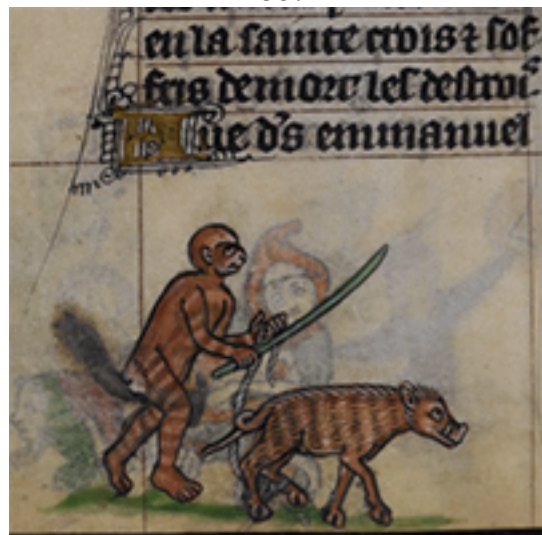 en la sainte crois ⁊ sof
fris de mort les destroi
Aue d's emmanuel